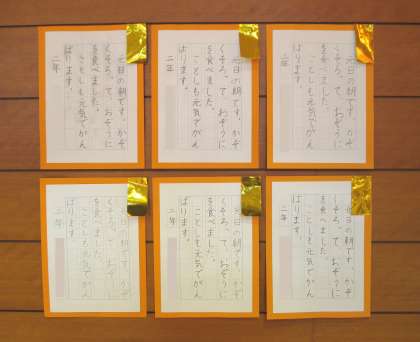 元日の朝です。かぞ
くそろって、おぞうに
を食べました。
ことしも元気でがん
ばります。
二年
元日の朝です。かぞ
くそろって、おぞうに
を食べました。
ことしも元気でがん
ばります。
二年
元日の朝です。かぞ
くそろって、おぞうに
を食べました。
ことしも元気でがん
ばります。
二年
元日の朝です。かぞ
くそろって、おぞうに
を食べました。
ことしも元気でがん
ばります。
二年
元日の朝です。かぞ
くそろって、おぞうに
を食べました。
ことしも元気でがん
ばります。
二年
元日の朝です。かぞ
くそろって、おぞうに
を食べました。
ことしも元気でがん
ばります。
二年